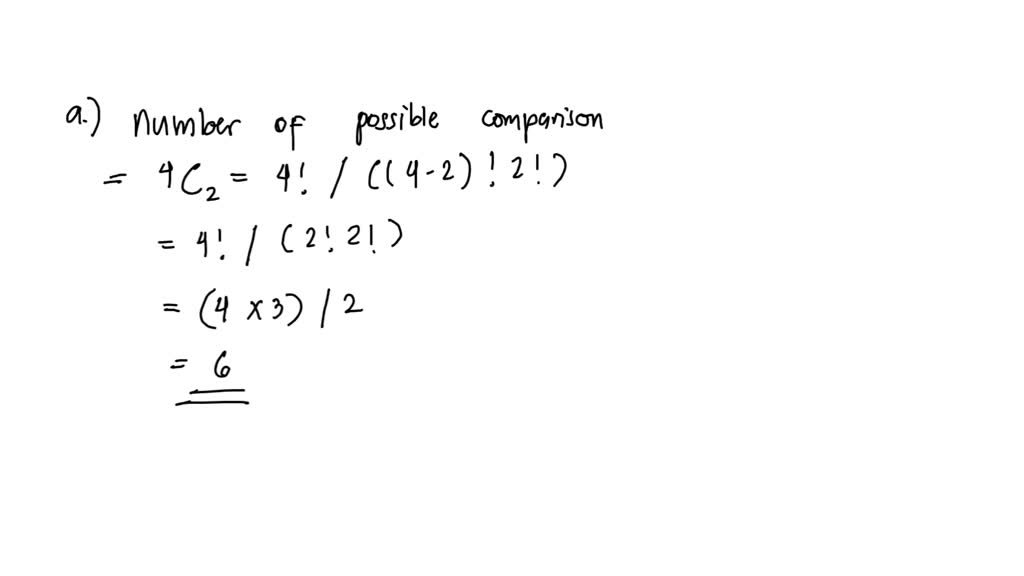 a.) Number of possible comparison
= 4C2 = 4! / ((4-2)! 2!)
= 4! / (2! 2!)
= (4 x 3) / 2
= 6